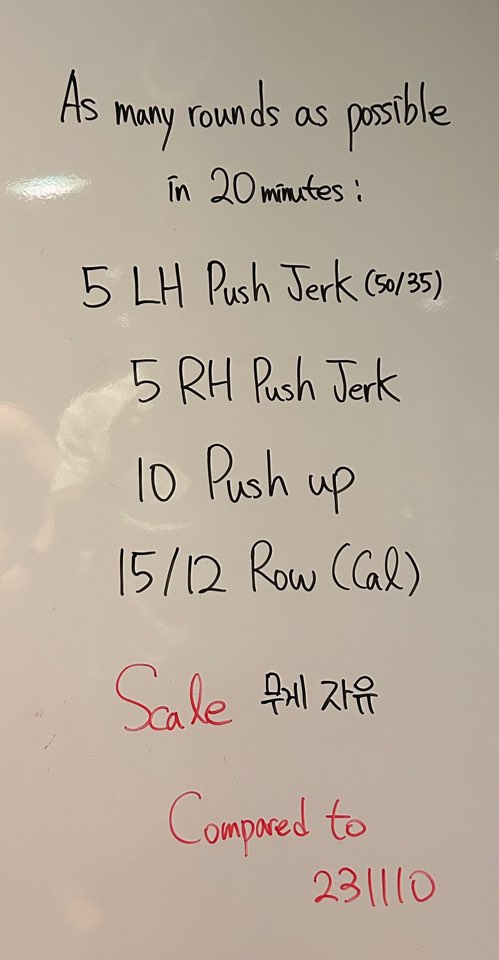 As many rounds as possible
in 20 minutes :
5 LH Push Jerk (50/35)
5 RH Push Jerk
10 Push up
15/12 Row (Cal)
Scale 무게 자유
Compared to
231110